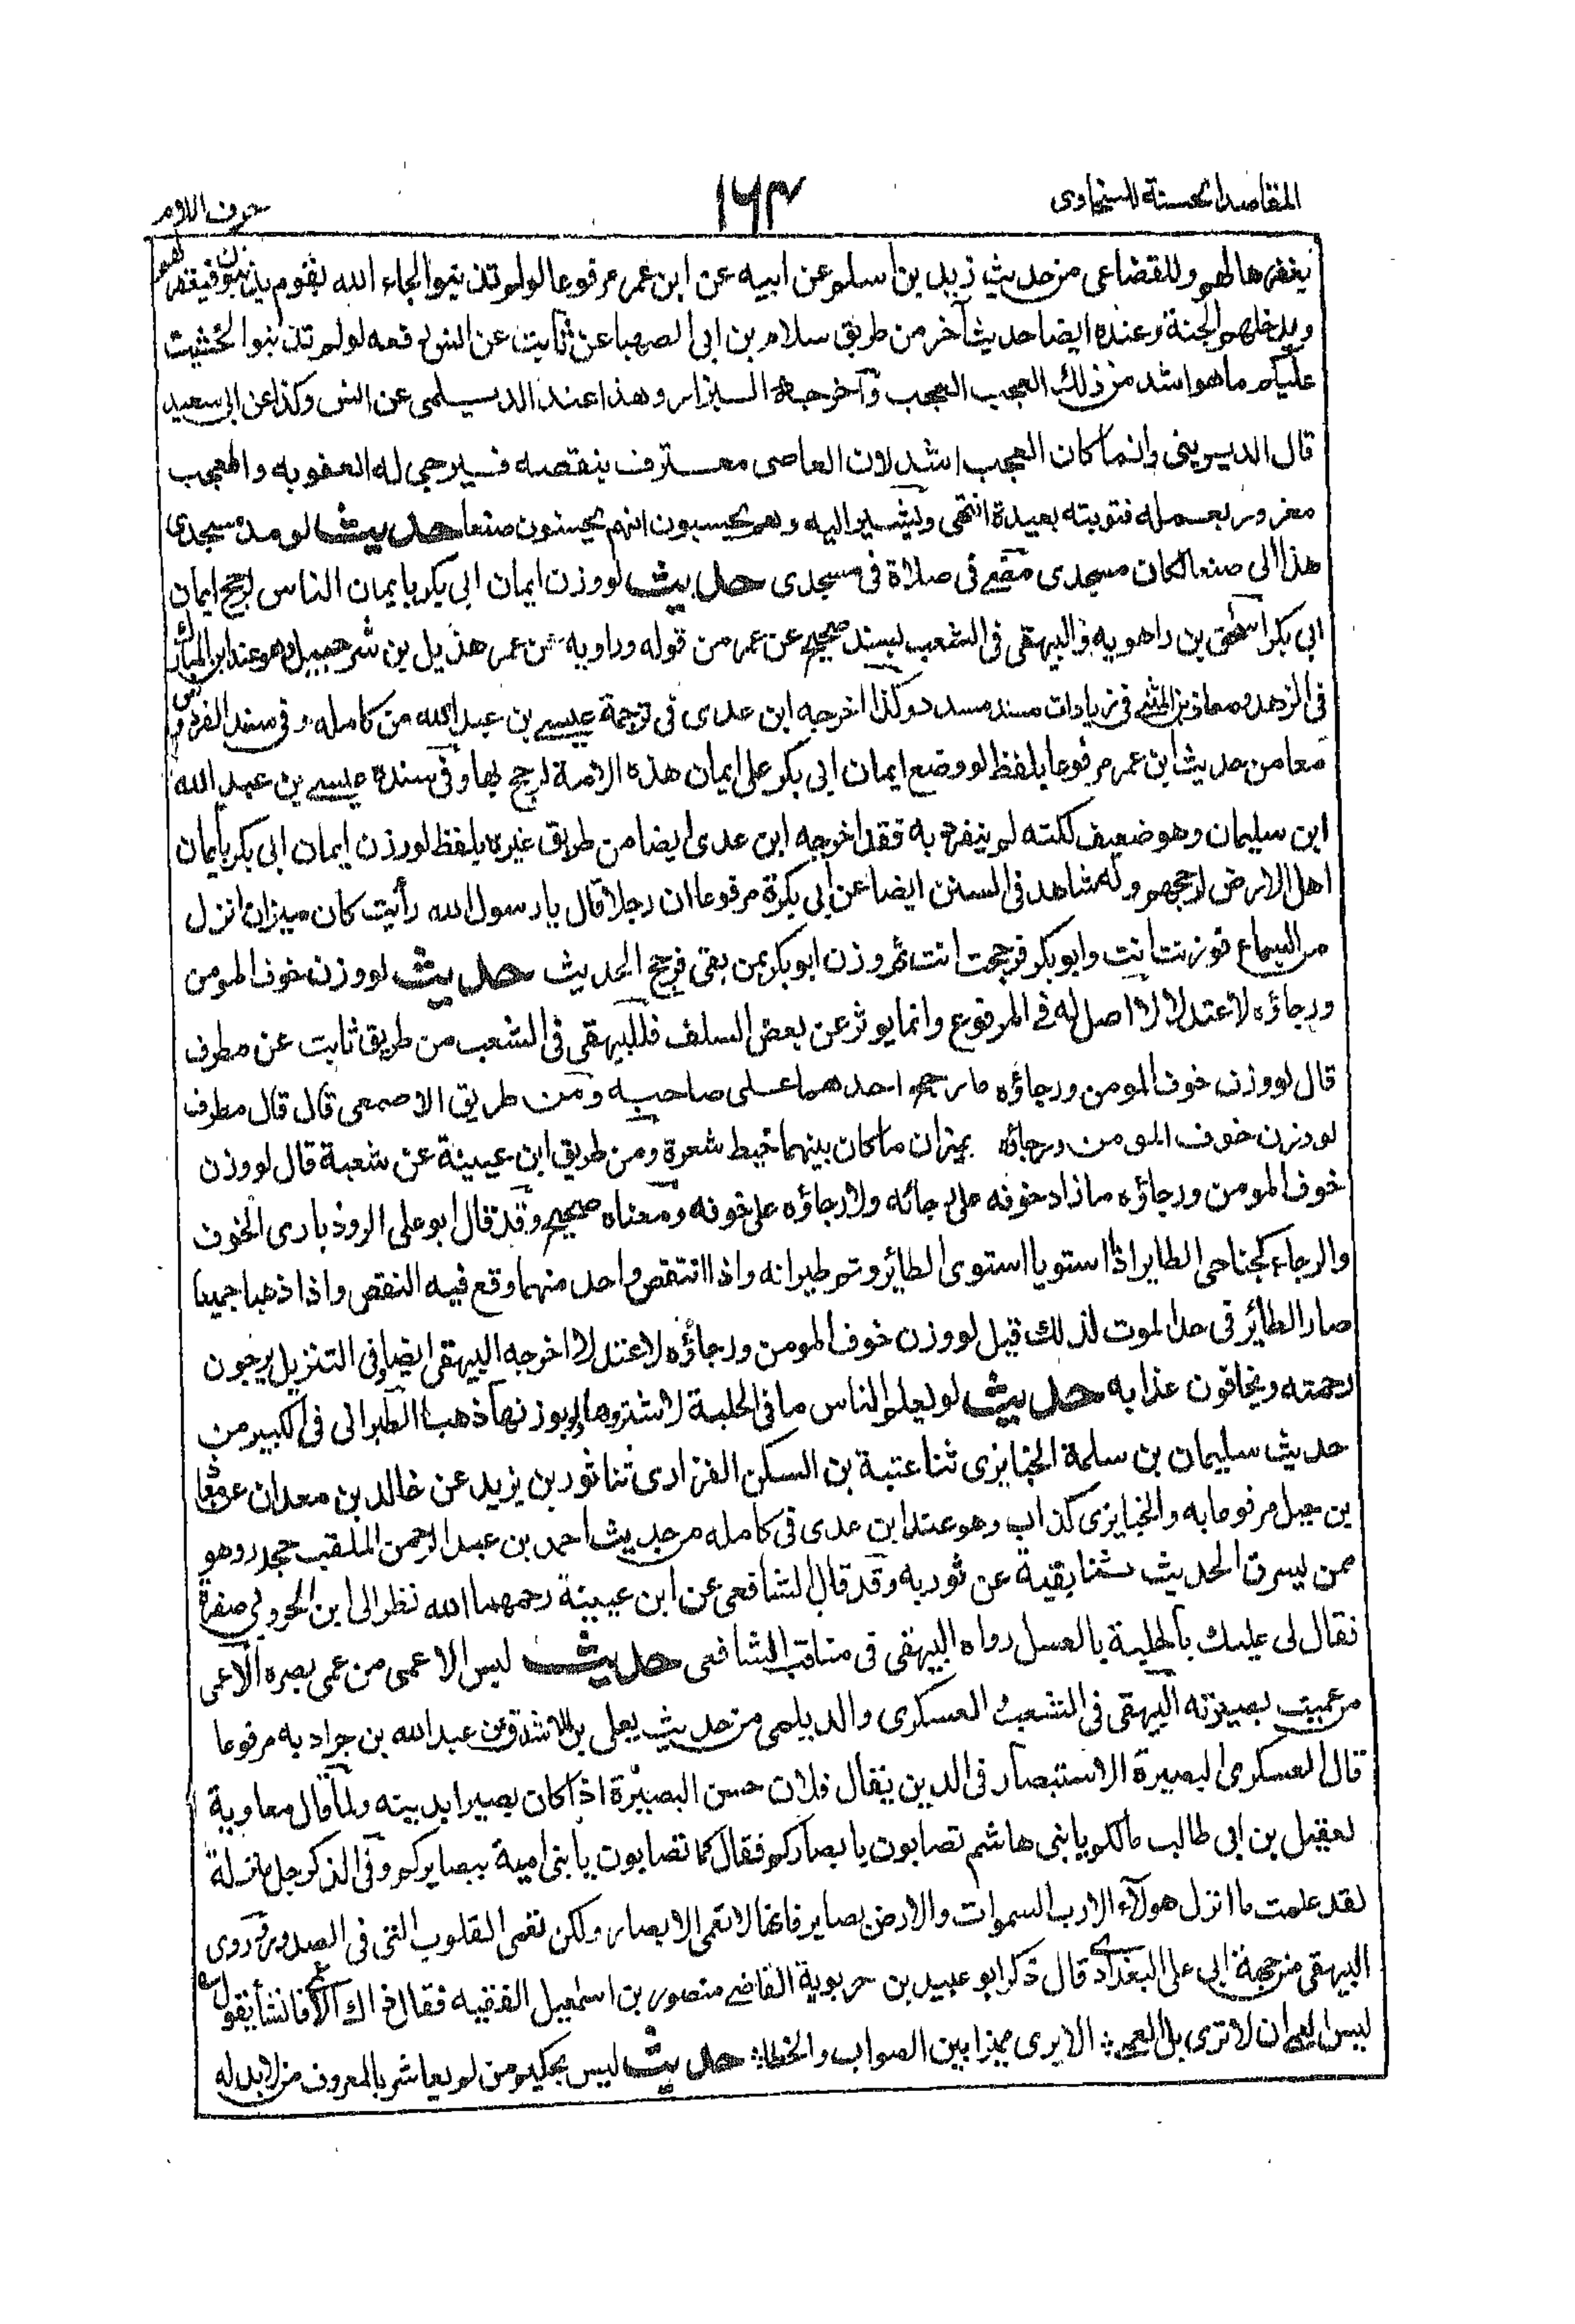 المقاصد الحسنة للسخاوى
١٦٣
حرف اللام
يغفرها لهم وللقضاعى من حديث زيد بن اسلم عن ابيه عن ابن عمر مرفوعا لو لم تذنبوا لجاء الله بقوم يذنبون فيغفر لهم
ويدخلهم الجنة وعنده ايضا حديث آخر من طريق سلام بن ابى الصهبا عن ثابت عن انس رفعه لو لم تذنبوا لخشيت
عليكم ما هو اشد من ذلك العجب العجب وآخرجه البزار وهذا عند الديلمى عن انس وكذا عن ابى سعيد
قال الديرينى وانما كان العجب اشد لان العاصى معترف بنقصه فيرجى له العفو به والمعجب
مغرور بعمله فتوبته بعيدة انتهى وليشير اليه وهم يحسبون انهم يحسنون صنعا حديث لو مد مسجدى
هذا الى صنعا لكان مسجدى مضے فى صلاة فى مسجدى حديث لو وزن ايمان ابى بكر بايمان الناس لرجح ايمان
ابى بكر اسحٰق بن راهويه والبيهقى فى الشعب بسند صحيح عن عمر من قوله وراويه عن عمر هذيل بن شرحبيل وهو عند ابن المبارك
فى الزهد ومعاذ بن المثنے فى زيادات مسند مسدد وكذا اخرجه ابن عدى فى ترجمة عيسے بن عبد الله من كامله وفى مسند الفردوس
معا من حديث ابن عمر مرفوعا بلفظ لو وضع ايمان ابى بكر على ايمان هذه الامة لرجح بها وفى سنده عيسے بن عبد الله
ابن سليمان وهو ضعيف لكنه لم ينفرد به فقد اخرجه ابن عدى ايضا من طريق غيره بلفظ لو وزن ايمان ابى بكر بايمان
اهل الارض لرجحهم وله شاهد فى السنن ايضا عن ابى بكرة مرفوعا ان رجلا قال يا رسول الله رأيت كان ميزان انزل
من السماء فوزنت انت وابو بكر فرجحت انت ثم وزن ابو بكر بمن بقى فرجح الحديث حديث لو وزن خوف المومن
ورجاؤه لاعتدلا لا اصل له فى المرفوع وانما يوثر عن بعض السلف فللبيهقى فى الشعب من طريق ثابت عن مطرف
قال لو وزن خوف المومن ورجاؤه ما رجح احدهما على صاحبه ومن طريق الاصمعى قال قال مطرف
لو وزن خوف المومن ورجاؤه بميزان ما كان بينهما خيط شعرة ومن طريق ابن عيينة عن شعبة قال لو وزن
خوف المومن ورجاؤه ما زاد خوفه على رجائه ولا رجاؤه على خوفه ومعناه صحيح وقد قال ابو على الروذبارى الخوف
والرجاء كجناحى الطاير اذا استويا استوى الطائر وتم طيرانه واذا انتقص واحد منهما وقع فيه النقص واذا ذهبا جميعا
صار الطائر فى حد الموت لذلك قيل لو وزن خوف المومن ورجاؤه لاعتدلا اخرجه البيهقى ايضا وفى التنزيل يرجون
رحمته ويخافون عذابه حديث لو يعلم الناس ما فى الحلبة لاشتروها ولو بوزنها ذهبا الطبرانى فى الكبير من
حديث سليمان بن سلمة الخبايزى ثنا عتبة بن السكن الفزارى ثنا ثور بن يزيد عن خالد بن معدان عن معاذ
بن جبل مرفوعا به والخبايزى كذاب وهو عند ابن عدى فى كامله من حديث احمد بن عبد الرحمن الملقب جحدر وهو
ممن يسرق الحديث ثنا بقية عن ثور به وقد قال الشافعى عن ابن عيينة رحمهما الله نظر الى ابن ابجر وبى صفرة
نقال لى عليك بالحلبة بالعسل رواه البيهقى فى مناقب الشافعى حديث ليس الاعمى من عمى بصره الاعمى
من عميت بصيرته البيهقى فى الشعب والعسكرى والديلمى من حديث يعلى بن الاشدق عن عبد الله بن جراد به مرفوعا
قال العسكرى البصيرة الاستبصار فى الدين يقال فلان حسن البصيرة اذا كان بصيرا بدينه ولما قال معاوية
لعقيل بن ابى طالب مالكم يا بنى هاشم تصابون بابصاركم فقال كما تصابون يا بنى امية ببصايركم وفى الذكر جل منزله
لقد علمت ما انزل هولآء الا رب السموات والارض بصاير فانها لا تعمى الابصار ولكن تعمى القلوب التى فى الصدور وروى
البيهقى من جهة ابى على البغدادے قال ذكر ابو عبيد بن حربوية القاضے منصور بن اسمٰعيل الفقيه فقال اك الاعمى فانشأ يقول
ليس العمى ان لا ترى بل العمى ؞ الا يرى مميزا بين الصواب والخطا ؞ حديث ليس بحكيم من لم يعاشر بالمعروف من لا بد له